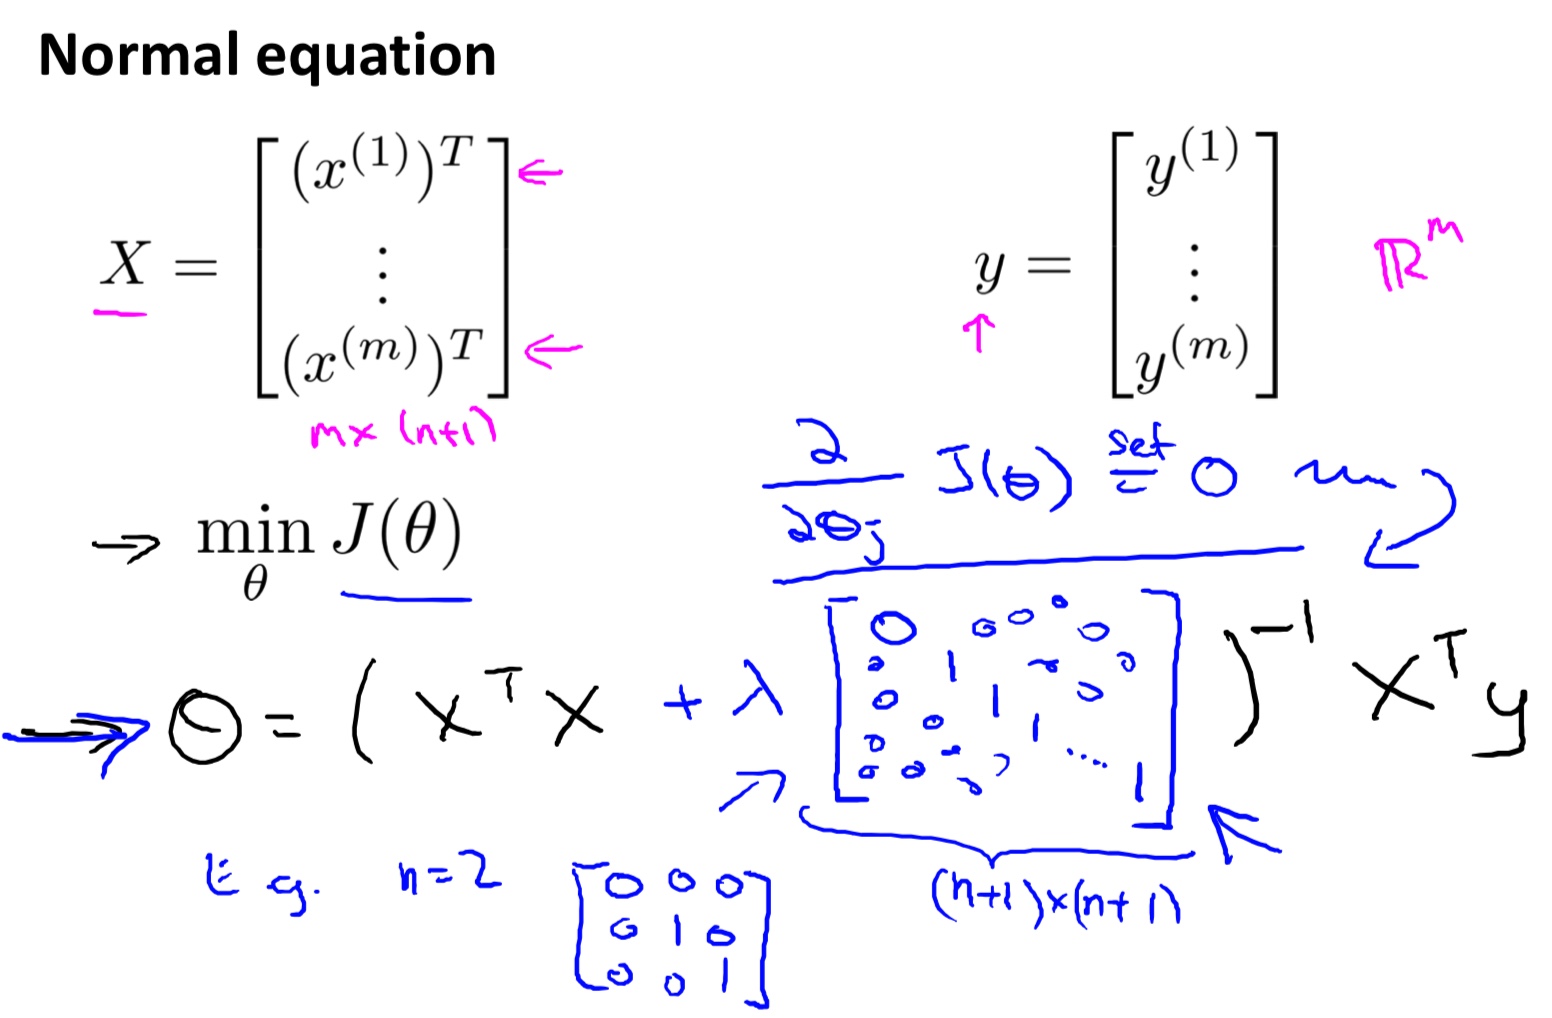 Normal equation
X = [ (x^(1))^T ⋮ (x^(m))^T ] ← ←
m × (n+1)
y = [ y^(1) ⋮ y^(m) ] ℝ^m
↑
→ min_θ J(θ)
∂/∂θ_j J(θ) set = 0
→ θ = ( X^T X + λ [ 0 0 0 0 0 1 0 0 0 1 0 0 0 1 0 0 0 ⋯ 1 ] )^-1 X^T y
(n+1)×(n+1)
E.g. n=2
[ 0 0 0
0 1 0
0 0 1 ]